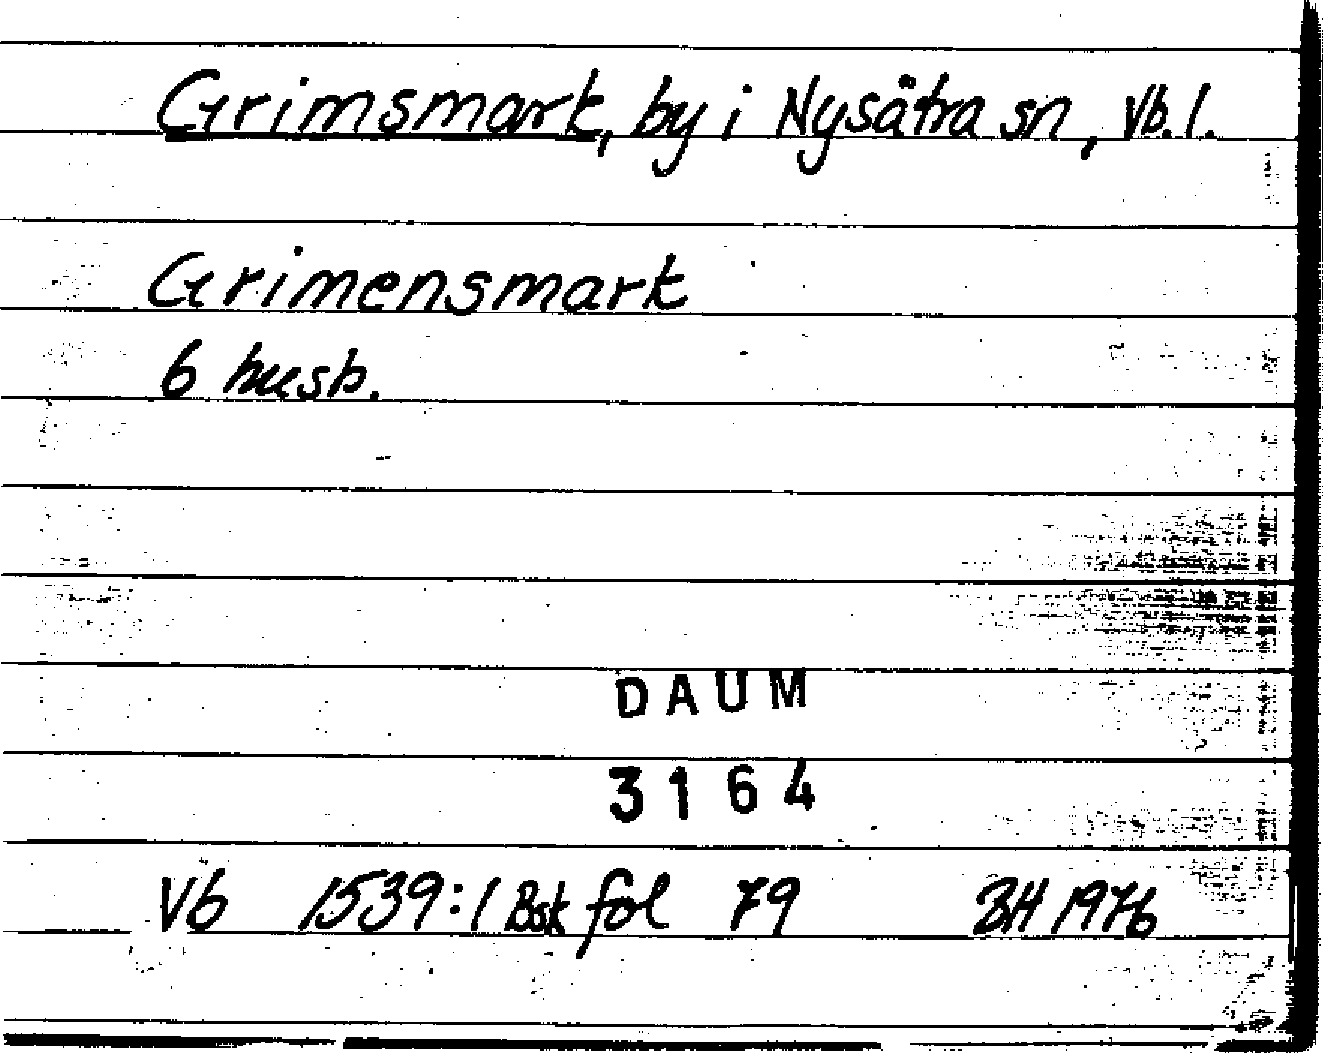 Grimsmark, by i Nysätra sn, Vb. l.
Grimensmark
6 husb.
DAUM
3164
Vb 1539:1 Bsk fol 79 BH 1976